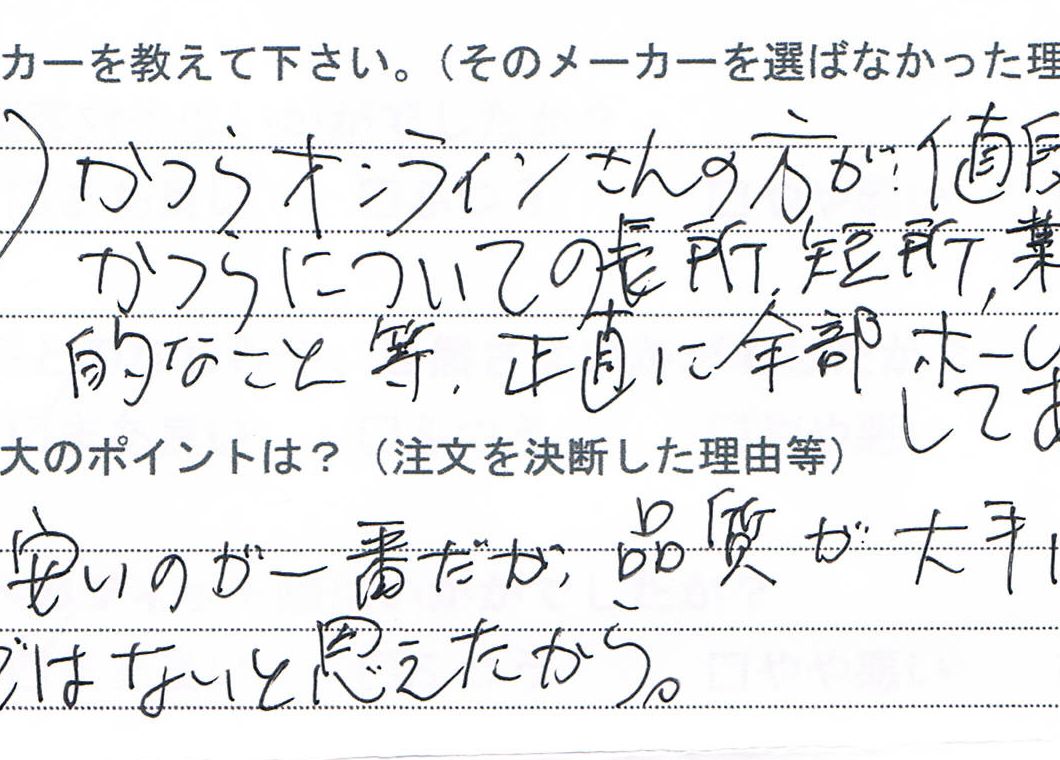 カーを教えて下さい。(そのメーカーを選ばなかった理
)かつらオンラインさんの方が、値段
かつらについての長所、短所、業
的なこと等、正直に全部ホーム
してあ
大のポイントは?(注文を決断した理由等)
安いのが一番だが、品質が大手に
ではないと思えたから。